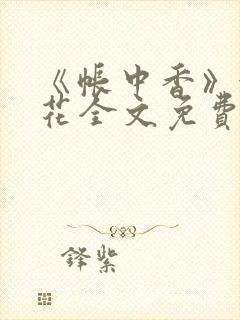 《帐中香》
花全文免費
鋒紫